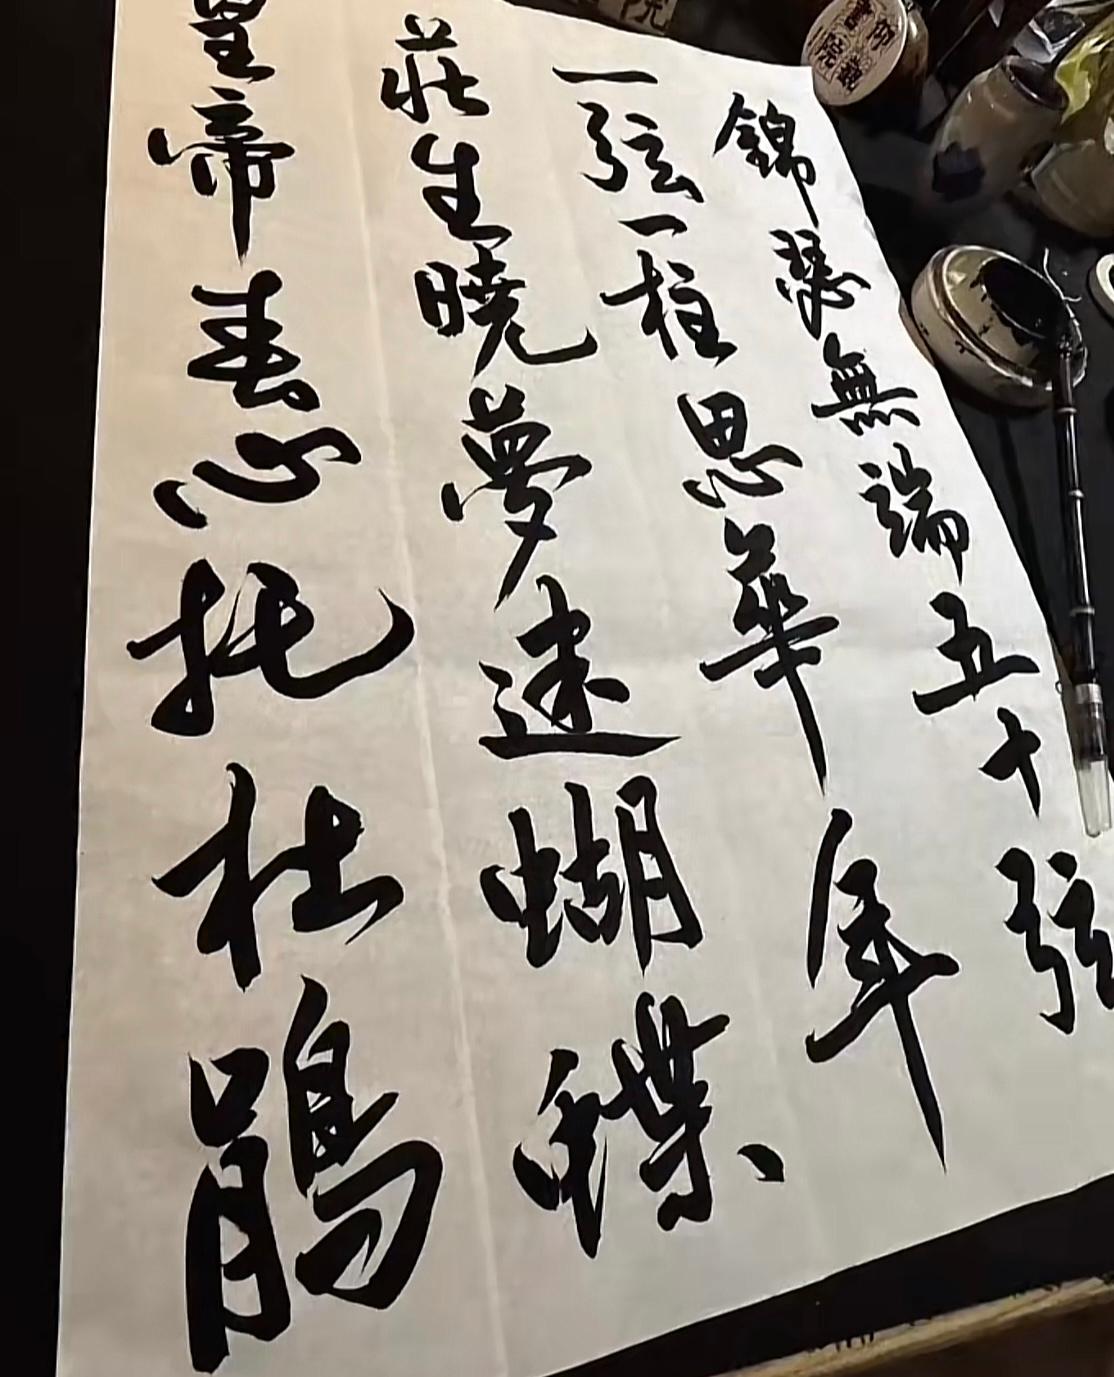 錦瑟無端五十弦
一弦一柱思華年
莊生曉夢迷蝴蝶
皇帝春心托杜鵑